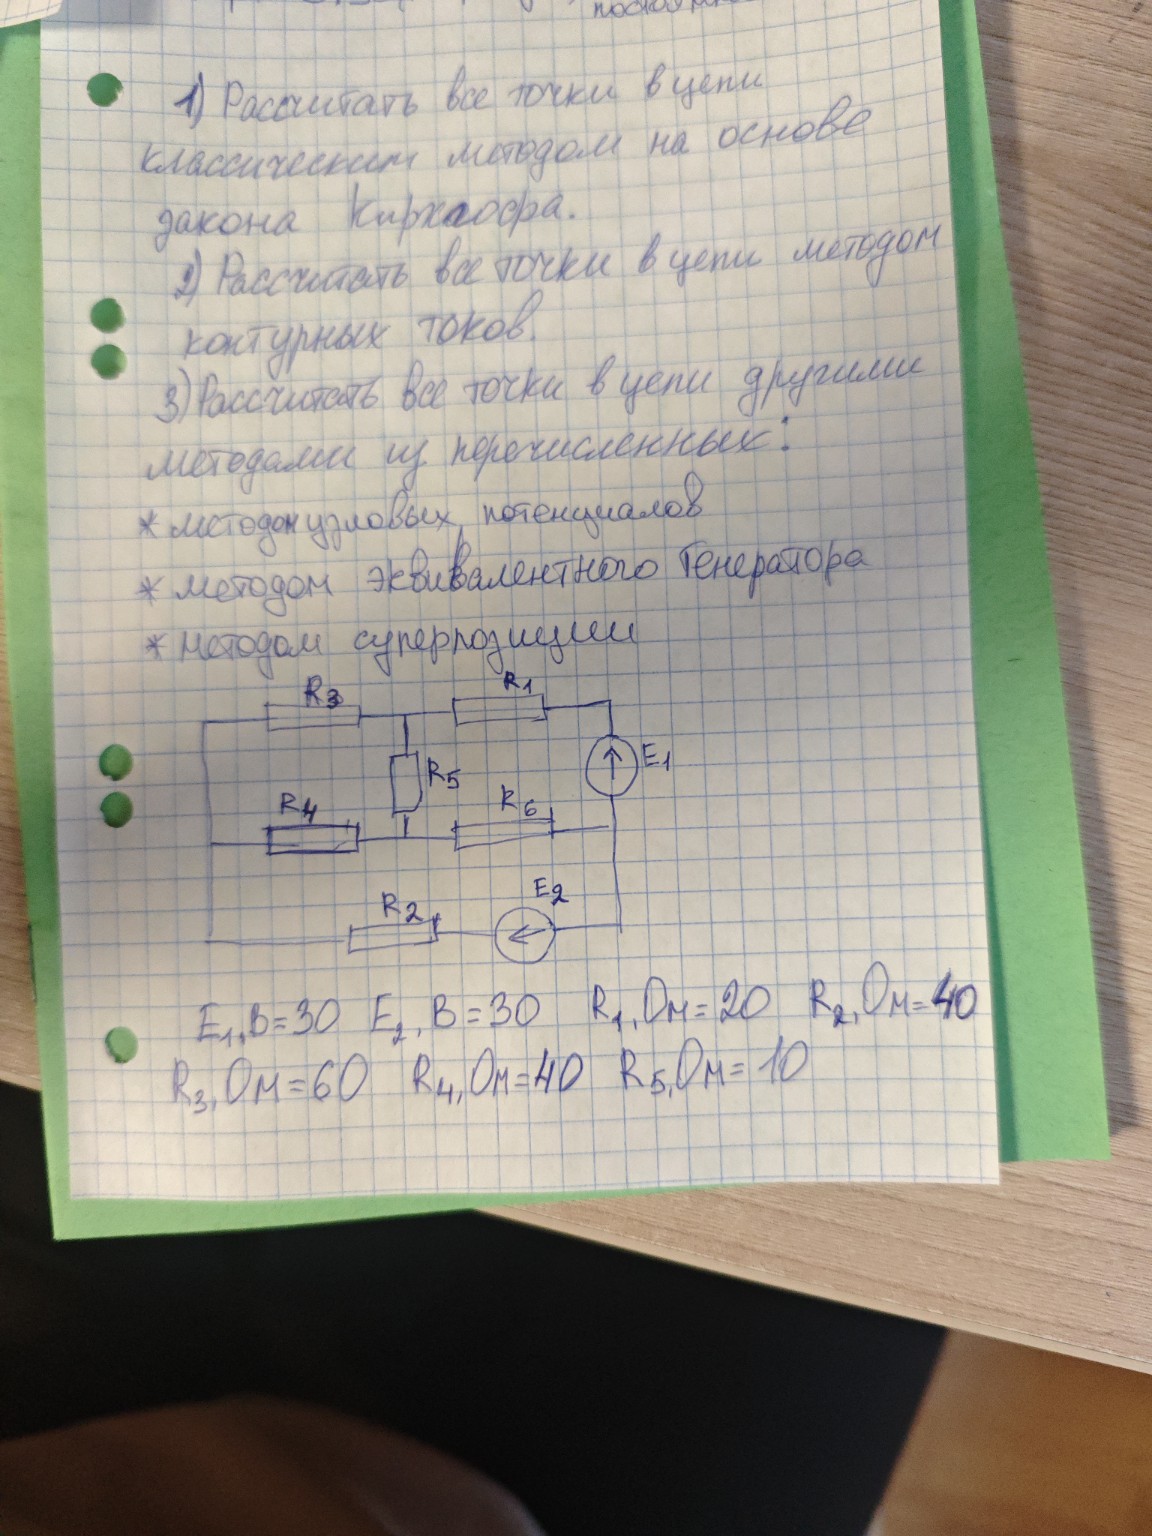 1) Рассчитать все точки в цепи
классическим методом на основе
закона Кирхаофа.
2) Рассчитать все точки в цепи методом
контурных токов.
3) Рассчитать все точки в цепи другими
методами из перечисленных:
* методом узловых потенциалов
* методом эквивалентного Генератора
* методом суперпозиции
R3 R1
R5 E1
R4 R6
R2 E2
E1,В=30 E2,В=30 R1,Ом=20 R2,Ом=40
R3,Ом=60 R4,Ом=40 R5,Ом=10